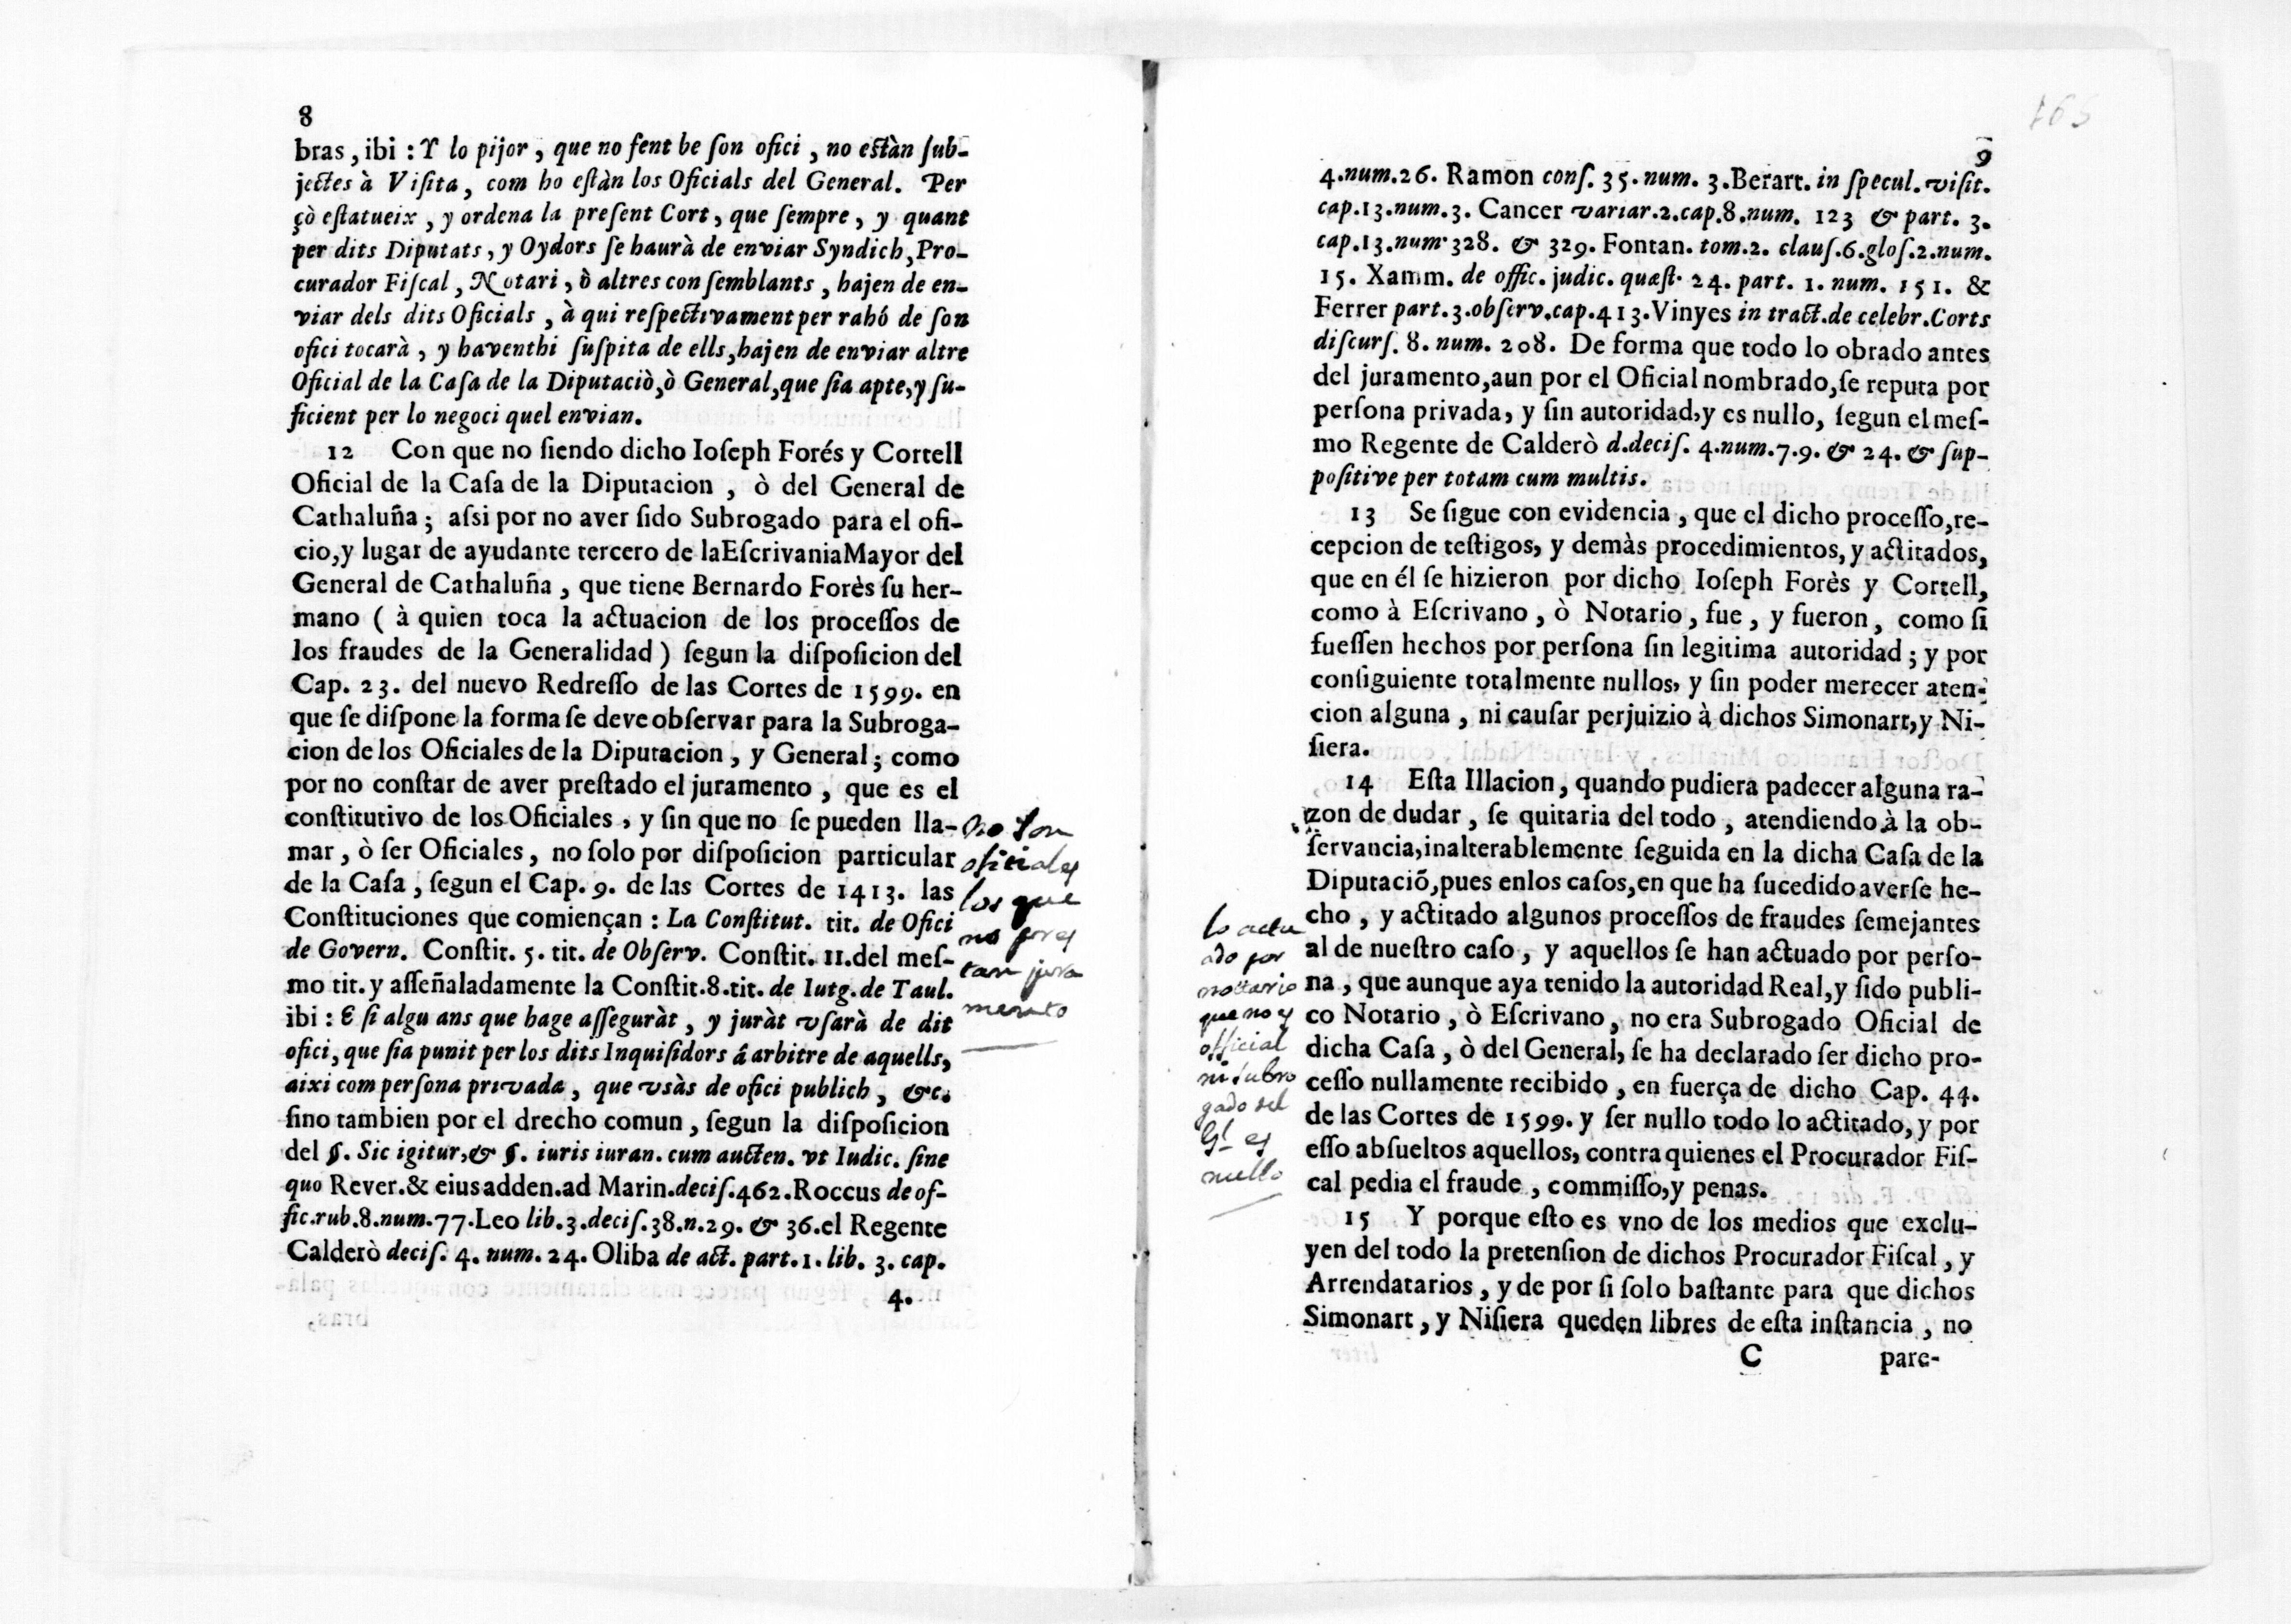 8
bras, ibi : Y lo pijor, que no fent be ſon ofici, no eſtàn ſub-
jectes à Viſita, com ho eſtàn los Oficials del General. Per
çò eſtatueix, y ordena la preſent Cort, que ſempre, y quant
per dits Diputats, y Oydors ſe haurà de enviar Syndich, Pro-
curador Fiſcal, Notari, ò altres con ſemblants, hajen de en-
viar dels dits Oficials, à qui reſpectivament per rahó de ſon
ofici tocarà, y haventhi ſuſpita de ells, hajen de enviar altre
Oficial de la Caſa de la Diputaciò, ò General, que ſia apte, y ſu-
ficient per lo negoci quel envian.
12 Con que no ſiendo dicho Ioſeph Forés y Cortell
Oficial de la Caſa de la Diputacion, ò del General de
Cathaluña; aſsi por no aver ſido Subrogado para el ofi-
cio, y lugar de ayudante tercero de laEſcrivaniaMayor del
General de Cathaluña, que tiene Bernardo Forès ſu her-
mano ( à quien toca la actuacion de los proceſſos de
los fraudes de la Generalidad ) ſegun la diſpoſicion del
Cap. 23. del nuevo Redreſſo de las Cortes de 1599. en
que ſe diſpone la forma ſe deve obſervar para la Subroga-
cion de los Oficiales de la Diputacion, y General; como
por no conſtar de aver preſtado el juramento, que es el
conſtitutivo de los Oficiales, y ſin que no ſe pueden lla-
mar, ò ſer Oficiales, no ſolo por diſpoſicion particular
de la Caſa, ſegun el Cap. 9. de las Cortes de 1413. las
Conſtituciones que comiençan : La Conſtitut. tit. de Ofici
de Govern. Conſtit. 5. tit. de Obſerv. Conſtit. 11.del meſ-
mo tit. y aſſeñaladamente la Conſtit.8.tit. de Iutg. de Taul.
ibi : E ſi algu ans que hage aſſeguràt, y juràt vſarà de dit
ofici, que ſia punit per los dits Inquiſidors á arbitre de aquells,
aixi com perſona privada, que vsàs de ofici publich, &c.
ſino tambien por el drecho comun, ſegun la diſpoſicion
del §. Sic igitur, & §. iuris iuran. cum aucten. vt Iudic. ſine
quo Rever. & eius adden. ad Marin. deciſ. 462. Roccus de of-
fic. rub. 8. num. 77. Leo lib. 3. deciſ. 38. n. 29. & 36. el Regente
Calderò deciſ. 4. num. 24. Oliba de act. part. 1. lib. 3. cap.
4.
no son
oficiales
los que
no pres
tan jura
mento
9
4. num. 26. Ramon conſ. 35. num. 3. Berart. in ſpecul. viſit.
cap. 13. num. 3. Cancer variar. 2. cap. 8. num. 123 & part. 3.
cap. 13. num. 328. & 329. Fontan. tom. 2. clauſ. 6. gloſ. 2. num.
15. Xamm. de offic. judic. quæſt. 24. part. 1. num. 151. &
Ferrer part. 3. obſerv. cap. 413. Vinyes in tract. de celebr. Corts
diſcurſ. 8. num. 208. De forma que todo lo obrado antes
del juramento, aun por el Oficial nombrado, ſe reputa por
perſona privada, y ſin autoridad, y es nullo, ſegun el meſ-
mo Regente de Calderò d. deciſ. 4. num. 7. 9. & 24. & ſup-
poſitive per totam cum multis.
13 Se ſigue con evidencia, que el dicho proceſſo, re-
cepcion de teſtigos, y demàs procedimientos, y actitados,
que en él ſe hizieron por dicho Ioſeph Forès y Cortell,
como à Eſcrivano, ò Notario, fue, y fueron, como ſi
fueſſen hechos por perſona ſin legitima autoridad; y por
conſiguiente totalmente nullos, y ſin poder merecer aten-
cion alguna, ni cauſar perjuizio à dichos Simonart, y Ni-
ſiera.
14 Eſta Illacion, quando pudiera padecer alguna ra-
zon de dudar, ſe quitaria del todo, atendiendo à la ob-
ſervancia, inalterablemente ſeguida en la dicha Caſa de la
Diputaciõ, pues enlos caſos, en que ha ſucedido averſe he-
cho, y actitado algunos proceſſos de fraudes ſemejantes
al de nueſtro caſo, y aquellos ſe han actuado por perſo-
na, que aunque aya tenido la autoridad Real, y ſido publi-
co Notario, ò Eſcrivano, no era Subrogado Oficial de
dicha Caſa, ò del General, ſe ha declarado ſer dicho pro-
ceſſo nullamente recibido, en fuerça de dicho Cap. 44.
de las Cortes de 1599. y ſer nullo todo lo actitado, y por
eſſo abſueltos aquellos, contra quienes el Procurador Fiſ-
cal pedia el fraude, commiſſo, y penas.
15 Y porque eſto es vno de los medios que exclu-
yen del todo la pretenſion de dichos Procurador Fiſcal, y
Arrendatarios, y de por ſi ſolo baſtante para que dichos
Simonart, y Niſiera queden libres de eſta inſtancia, no
C pare-
lo actu
ado por
nottario
que no es
official
ni subro
gado del
Gl es
nullo